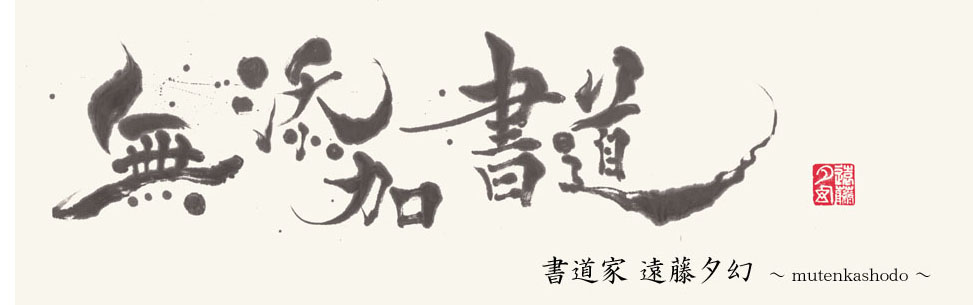 無添加書道
遠藤夕幻
書道家 遠藤夕幻 ～ mutenkashodo ～